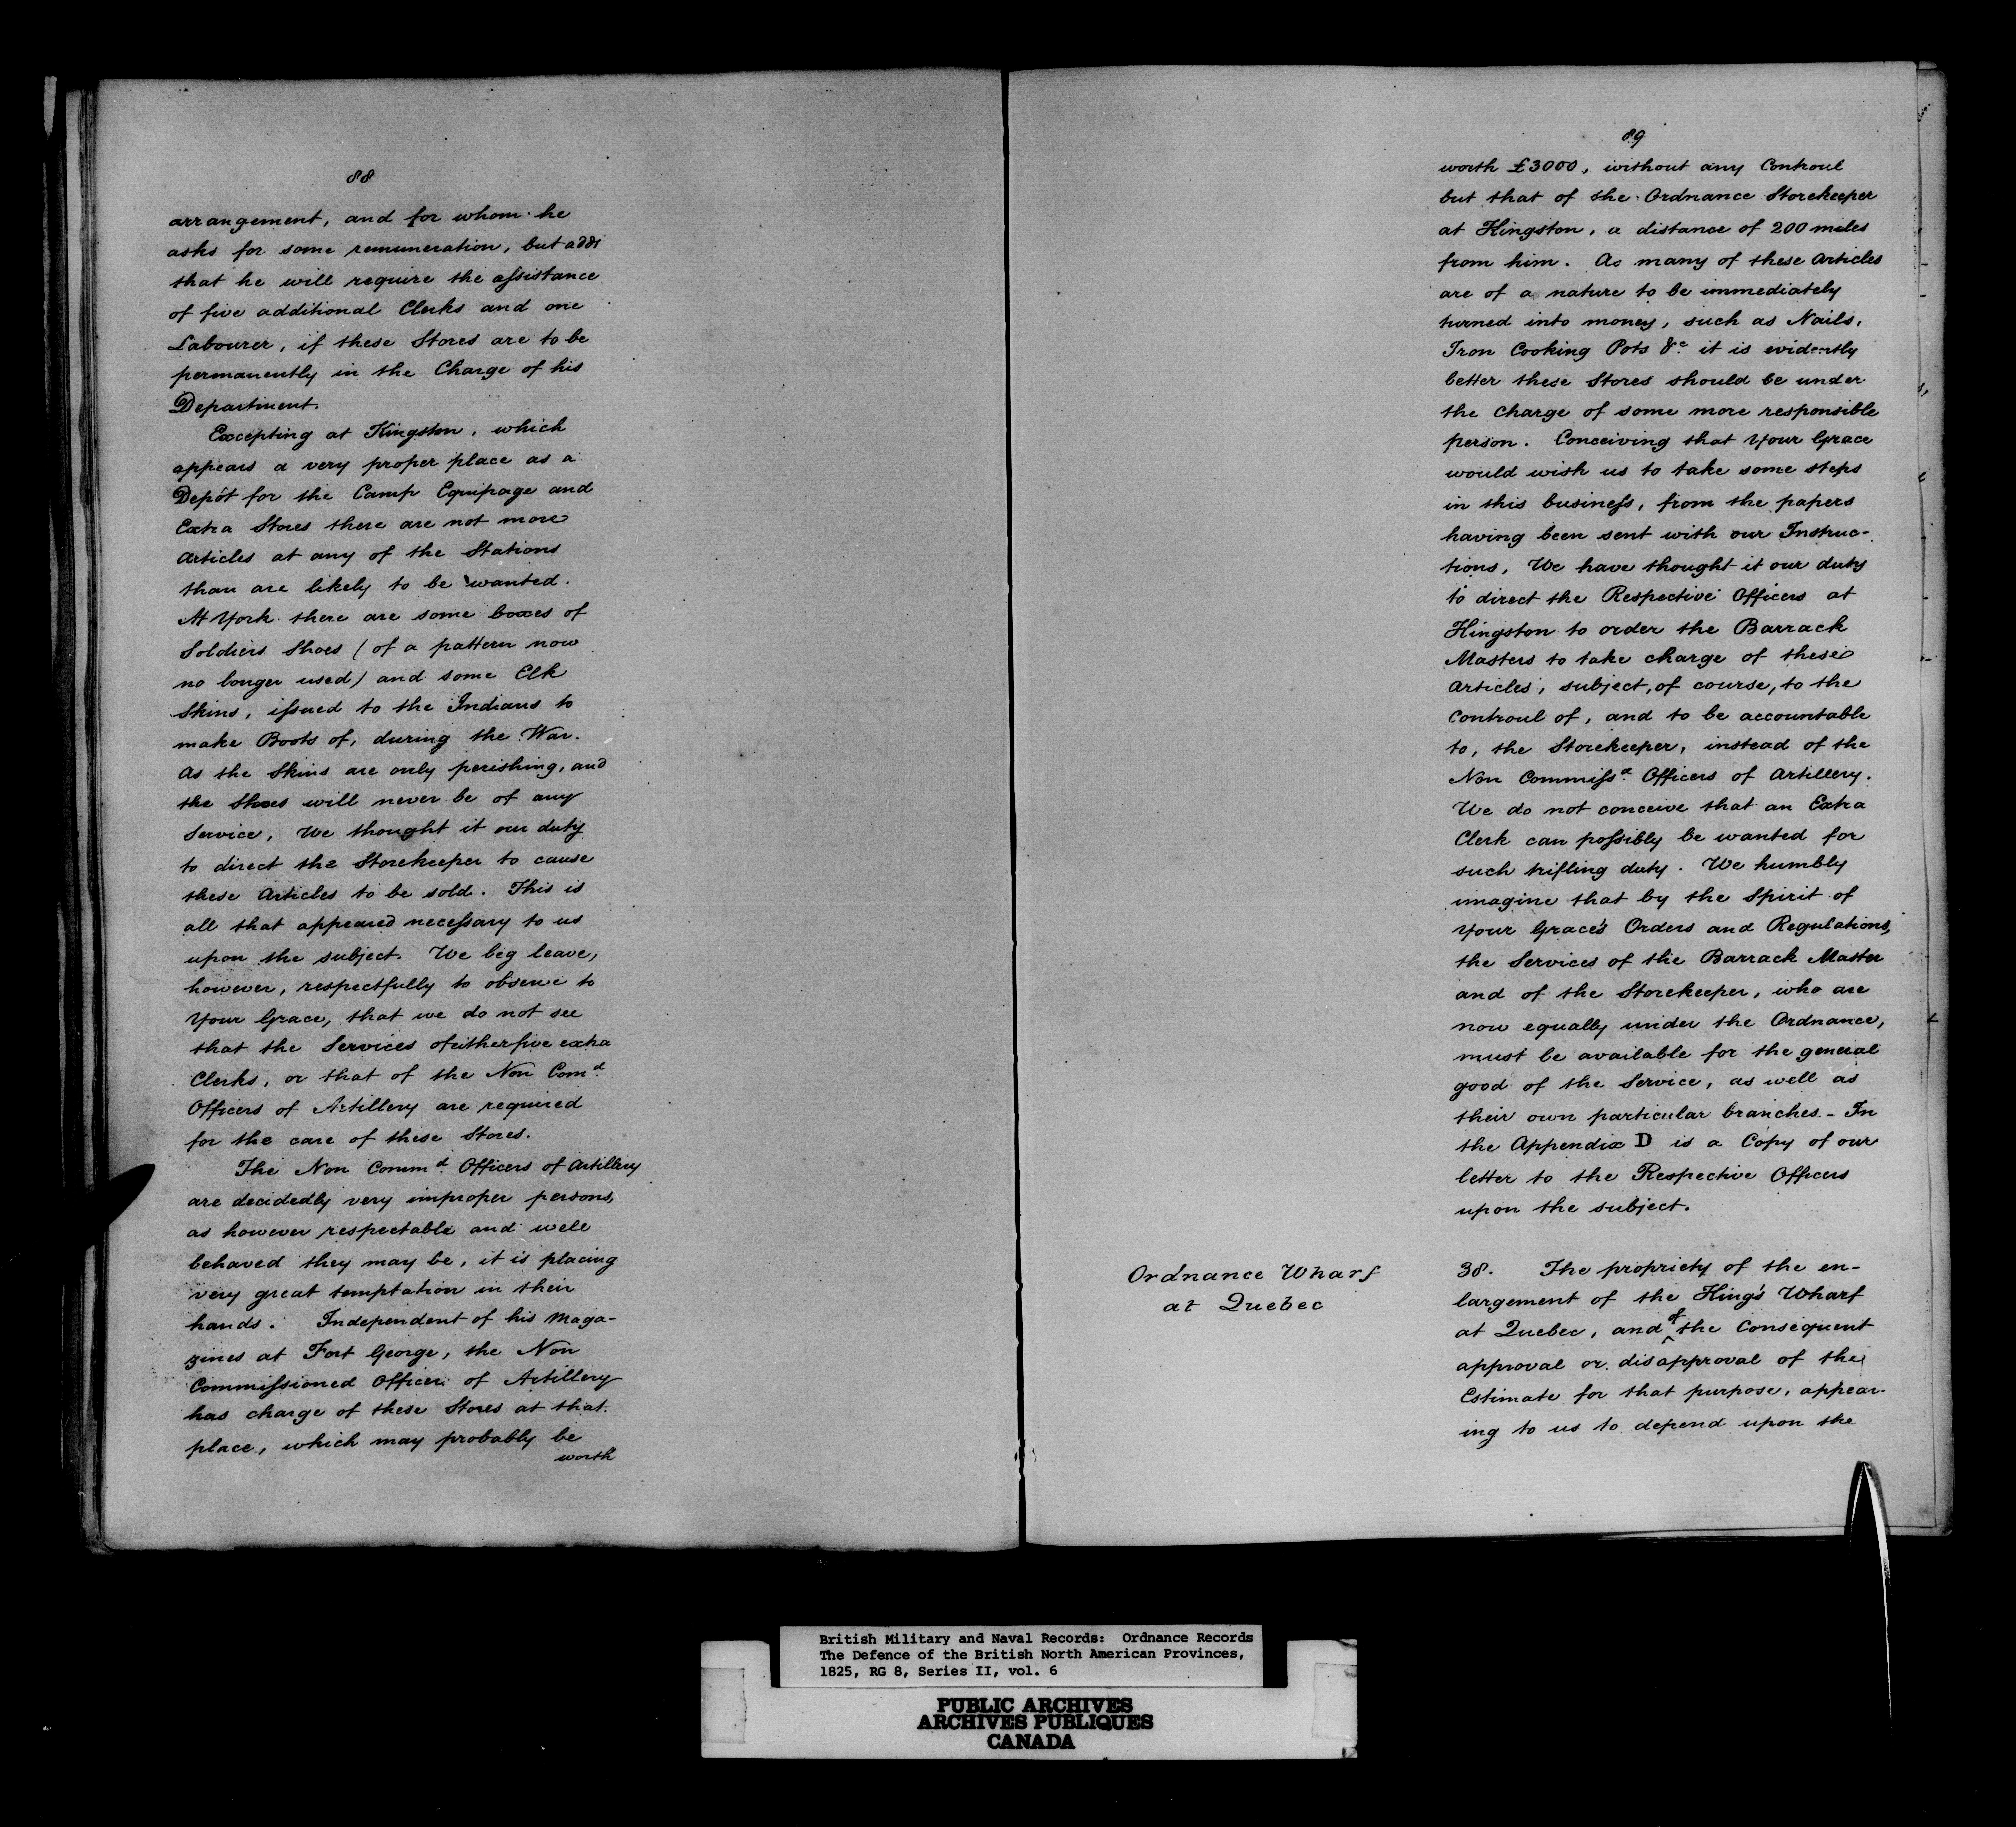 88
arrangement, and for whom he
asks for some remuneration, but adds
that he will require the assistance
of five additional Clerks and one
Labourer, if these Stores are to be
permanently in the Charge of his
Department.
Excepting at Kingston, which
appears a very proper place as a
Depôt for the Camp Equipage and
Extra Stores there are not more
Articles at any of the Stations
than are likely to be wanted.
At York there are some boxes of
Soldiers Shoes (of a pattern now
no longer used) and some Elk
Skins, issued to the Indians to
make Boots of, during the War.
As the Skins are only perishing, and
the Shoes will never be of any
Service, We thought it our duty
to direct the Storekeeper to cause
these Articles to be sold. This is
all that appeared necessary to us
upon the subject. We beg leave,
however, respectfully to observe to
Your Grace, that we do not see
that the Services of either five extra
Clerks, or that of the Non Comd.
Officers of Artillery are required
for the care of these Stores.
The Non Commd. Officers of Artillery
are decidedly very improper persons,
as however respectable and well
behaved they may be, it is placing
very great temptation in their
hands. Independent of his Maga-
zines at Fort George, the Non
Commissioned Officer of Artillery
has charge of these Stores at that
place, which may probably be
worth
89
worth £3000, without any Controul
but that of the Ordnance Storekeeper
at Kingston, a distance of 200 miles
from him. As many of these Articles
are of a nature to be immediately
turned into money, such as Nails,
Iron Cooking Pots &c. it is evidently
better these Stores should be under
the Charge of some more responsible
person. Conceiving that Your Grace
would wish us to take some steps
in this business, from the papers
having been sent with our Instruc-
tions, We have thought it our duty
to direct the Respective Officers at
Kingston to order the Barrack
Masters to take charge of these
Articles, subject, of course, to the
Controul of, and to be accountable
to, the Storekeeper, instead of the
Non Commissd. Officers of Artillery.
We do not conceive that an Extra
Clerk can possibly be wanted for
such trifling duty. We humbly
imagine that by the Spirit of
Your Grace's Orders and Regulations,
the Services of the Barrack Master
and of the Storekeeper, who are
now equally under the Ordnance,
must be available for the general
good of the Service, as well as
their own particular branches. - In
the Appendix D is a Copy of our
letter to the Respective Officers
upon the subject.
Ordnance Wharf
at Quebec
38. The propriety of the en-
largement of the King's Wharf
at Quebec, and of the Consequent
approval or disapproval of the
Estimate for that purpose, appear-
ing to us to depend upon the
British Military and Naval Records: Ordnance Records
The Defence of the British North American Provinces,
1825, RG 8, Series II, vol. 6
PUBLIC ARCHIVES
ARCHIVES PUBLIQUES
CANADA